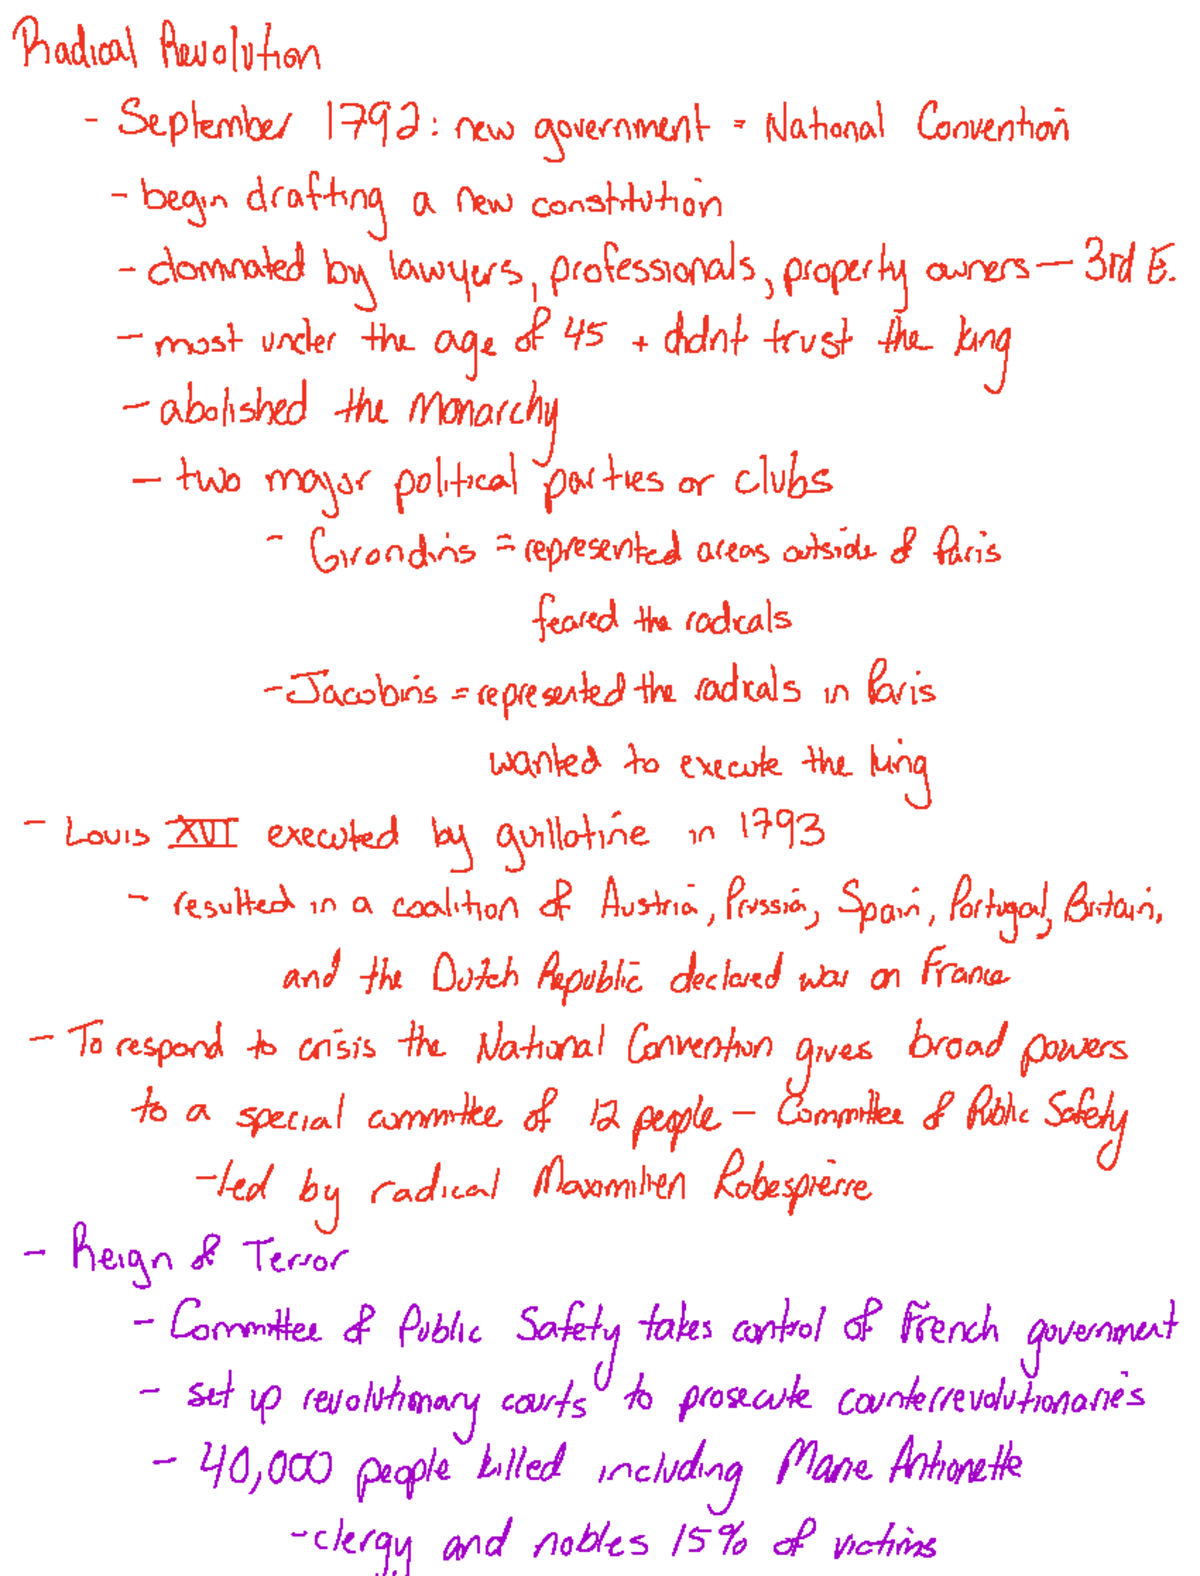 Radical Revolution
- September 1792: new government = National Convention
- begin drafting a new constitution
- dominated by lawyers, professionals, property owners — 3rd E.
- most under the age of 45 + didnt trust the king
- abolished the Monarchy
- two major political parties or clubs
- Girondins = represented areas outside of Paris
feared the radicals
- Jacobins = represented the radicals in Paris
wanted to execute the king
- Louis XVI executed by guillotine in 1793
- resulted in a coalition of Austria, Prussia, Spain, Portugal, Britain,
and the Dutch Republic declared war on France
- To respond to crisis the National Convention gives broad powers
to a special committee of 12 people - Committee of Public Safety
- led by radical Maximilien Robespierre
- Reign of Terror
- Committee of Public Safety takes control of French government
- set up revolutionary courts to prosecute counterrevolutionaries
- 40,000 people killed including Marie Antionette
- clergy and nobles 15% of victims